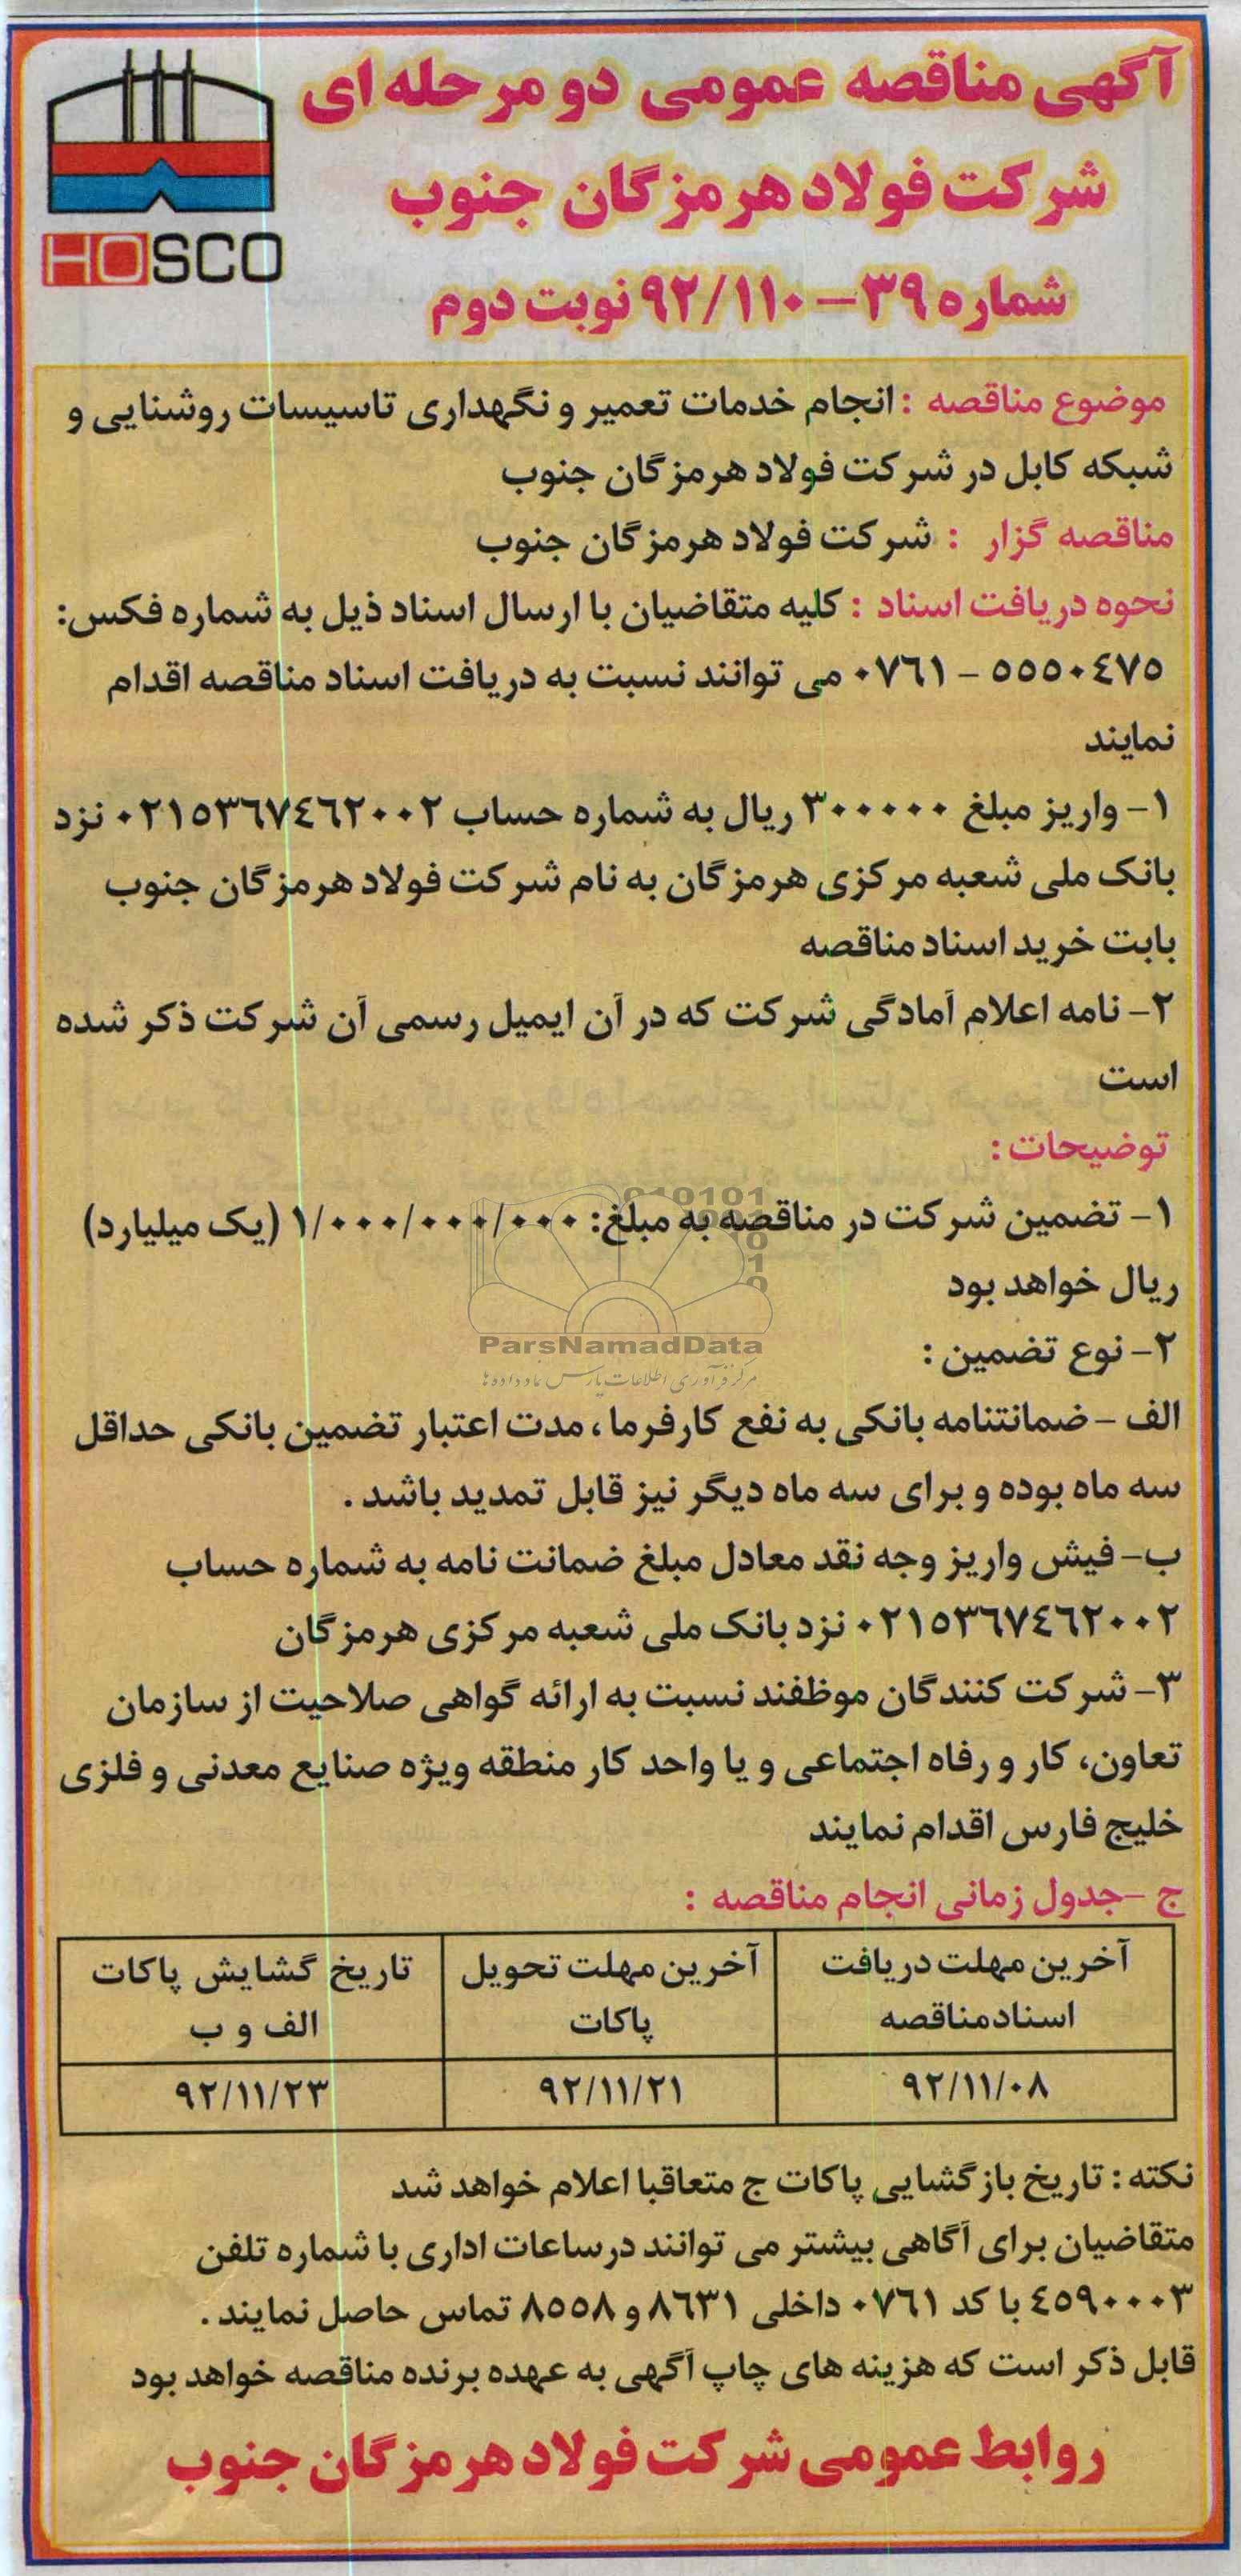 آگهی مناقصه عمومی دو مرحله ای
شرکت فولاد هرمزگان جنوب
HOSCO
شماره ۳۹-۹۲/۱۱۰ نوبت دوم
موضوع مناقصه : انجام خدمات تعمیر و نگهداری تاسیسات روشنایی و
شبکه کابل در شرکت فولاد هرمزگان جنوب
مناقصه گزار : شرکت فولاد هرمزگان جنوب
نحوه دریافت اسناد : کلیه متقاضیان با ارسال اسناد ذیل به شماره فکس:
۵۵۵۰٤۷۵ - ۰۷٦۱ می توانند نسبت به دریافت اسناد مناقصه اقدام
نمایند
۱- واریز مبلغ ۳۰۰۰۰۰ ریال به شماره حساب ۰۲۱۵۳٦۷٤٦۲۰۰۲ نزد
بانک ملی شعبه مرکزی هرمزگان به نام شرکت فولاد هرمزگان جنوب
بابت خرید اسناد مناقصه
۲- نامه اعلام آمادگی شرکت که در آن ایمیل رسمی آن شرکت ذکر شده
است
توضیحات :
۱- تضمین شرکت در مناقصه به مبلغ: ۱/۰۰۰/۰۰۰/۰۰۰ (یک میلیارد)
ریال خواهد بود
۲- نوع تضمین :
الف - ضمانتنامه بانکی به نفع کارفرما ، مدت اعتبار تضمین بانکی حداقل
سه ماه بوده و برای سه ماه دیگر نیز قابل تمدید باشد .
ب- فیش واریز وجه نقد معادل مبلغ ضمانت نامه به شماره حساب
۰۲۱۵۳٦۷٤٦۲۰۰۲ نزد بانک ملی شعبه مرکزی هرمزگان
۳- شرکت کنندگان موظفند نسبت به ارائه گواهی صلاحیت از سازمان
تعاون، کار و رفاه اجتماعی و یا واحد کار منطقه ویژه صنایع معدنی و فلزی
خلیج فارس اقدام نمایند
ج -جدول زمانی انجام مناقصه :
آخرین مهلت دریافت اسناد مناقصه
آخرین مهلت تحویل پاکات
تاریخ گشایش پاکات الف و ب
۹۲/۱۱/۰۸
۹۲/۱۱/۲۱
۹۲/۱۱/۲۳
نکته : تاریخ بازگشایی پاکات ج متعاقبا اعلام خواهد شد
متقاضیان برای آگاهی بیشتر می توانند درساعات اداری با شماره تلفن
٤۵۹۰۰۰۳ با کد ۰۷٦۱ داخلی ۸٦۳۱ و ۸۵۵۸ تماس حاصل نمایند .
قابل ذکر است که هزینه های چاپ آگهی به عهده برنده مناقصه خواهد بود
روابط عمومی شرکت فولاد هرمزگان جنوب
ParsNamadData
مرکز فرآوری اطلاعات پارس نماد داده ها